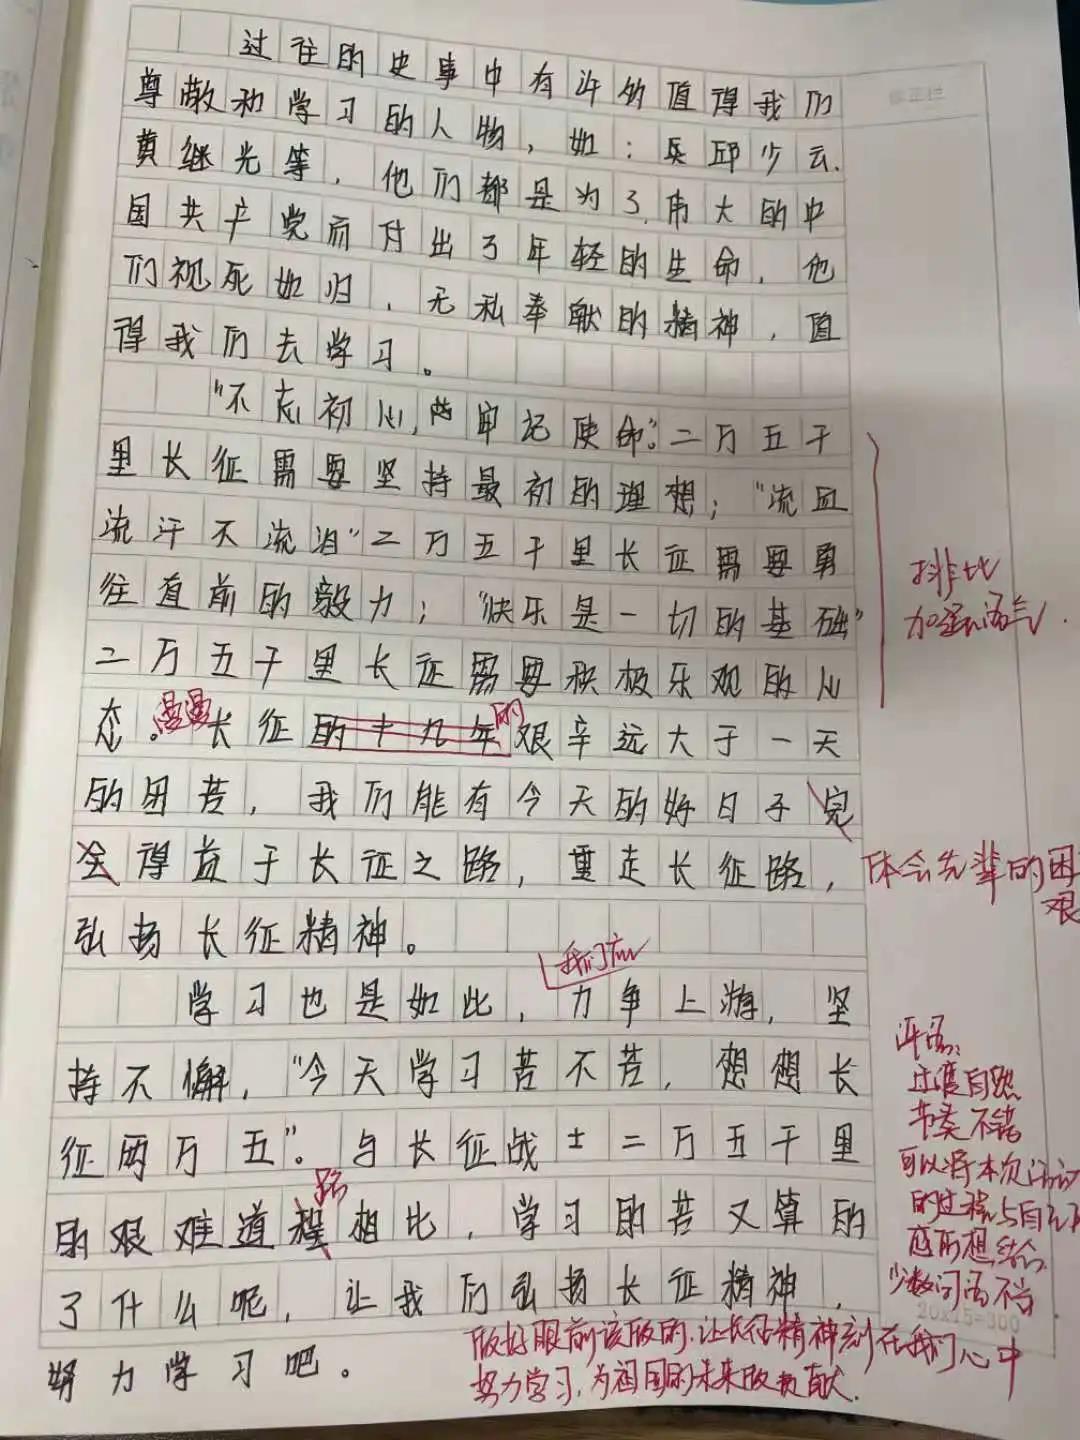 过往的史事中有许的值得我们
尊敬和学习的人物，如：兵邱少云.
黄继光等，他们都是为了.伟大的中
国共产党而付出了年轻的生命，他
们视死如归，无私奉献的精神，值
得我们去学习。
"不忘初心,牢记使命"。二万五千
里长征需要坚持最初的理想；"流血
流汗不流泪"二万五千里长征需要勇
往直前的毅力；"快乐是一切的基础"
二万五千里长征需要积极乐观的心
排比
加强语气.
态。漫漫长征的十九年的艰辛远大于一天
的困苦，我们能有今天的好日子完
全得益于长征之路，重走长征路，体会先辈的困
艰
弘扬长征精神。
学习也是如此，我们应力争上游，坚
持不懈，"今天学习苦不苦，想想长
征两万五"。与长征战士二万五千里
的艰难道程路相比，学习的苦又算的
了什么呢，让我们弘扬长征精神，
努力学习吧。
评语：
过渡自然
节奏不错
可以将本次活动
的过程与自己
感所想结合
少数词语不当
20x15=300
做好眼前该做的,让长征精神刻在我们心中
努力学习,为祖国的未来做贡献.